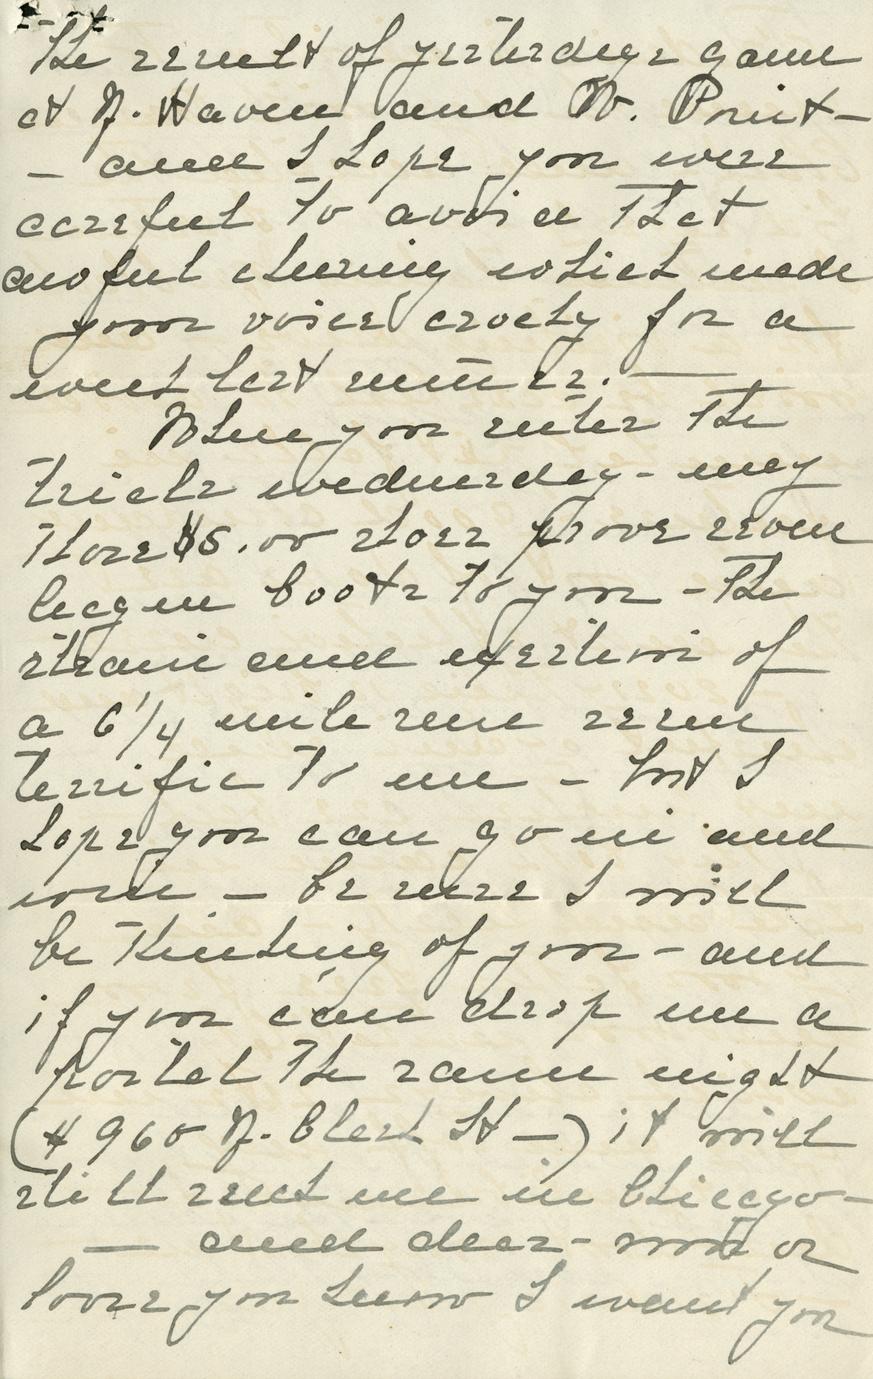 The result of yesterdays game
at N. Haven and W. Point —
— and I hope you were
careful to avoid that
awful cheering which made
your voice croaky for a
week last winter. —
When you enter the
trials wednesday - may
those $5.00 shoes prove seven
league boots to you - The
strain and exertion of
a 6 1/4 mile run seem
terrific to me - but I
hope you can go in and
win — be sure I will
be thinking of you - and
if you can drop me a
postal the same night
(# 960 N. Clark St —) it will
still reach me in Chicago —
— and dear - win or
loose you know I want you